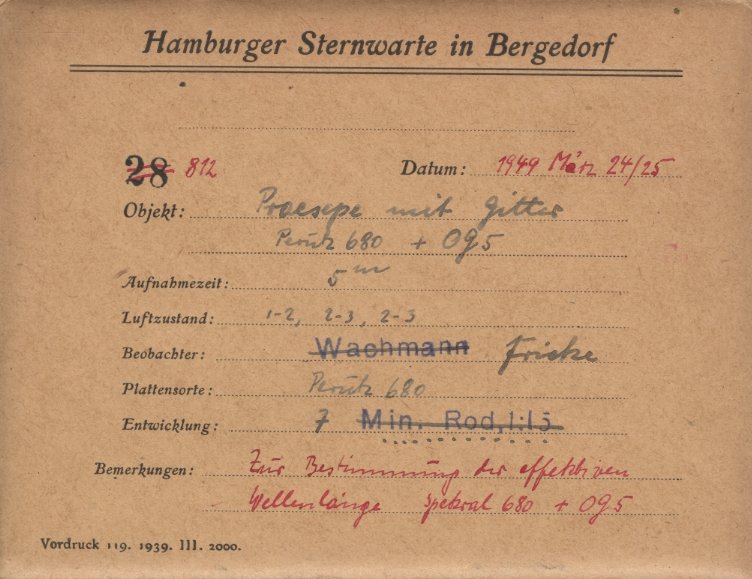 Hamburger Sternwarte in Bergedorf
28 812 Datum: 1949 März 24/25
Objekt: Praesepe mit Gitter
Perutz 680 + OG5
Aufnahmezeit: 5m
Luftzustand: 1-2, 2-3, 2-3
Beobachter: Wachmann Fricke
Plattensorte: Perutz 680
Entwicklung: 7 Min. Rod.1:15
Bemerkungen: Zur Bestimmung der effektiven
Wellenlänge Spektral 680 + OG5
Vordruck 119. 1939. III. 2000.